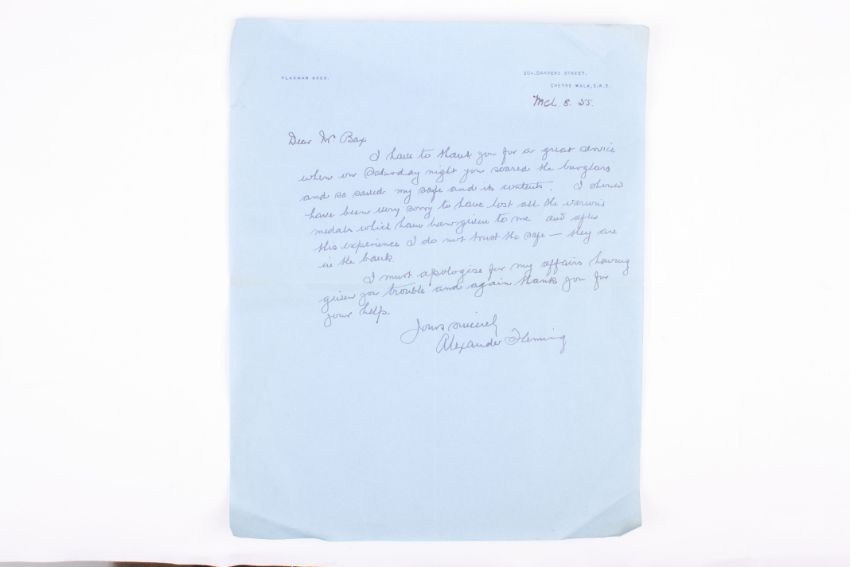 FLAXMAN 6525.
20A, DANVERS STREET,
CHEYNE WALK, S.W.3.
Mch 8. 55.
Dear Mr Bax
I have to thank you for a great service
when on Saturday night you scared the burglars
and so saved my safe and its contents. I should
have been very sorry to have lost all the various
medals which have been given to me and after
this experience I do not trust the safe — they are
in the bank
I must apologise for my affairs having
given you trouble and again thank you for
your help.
Yours sincerely
Alexander Fleming